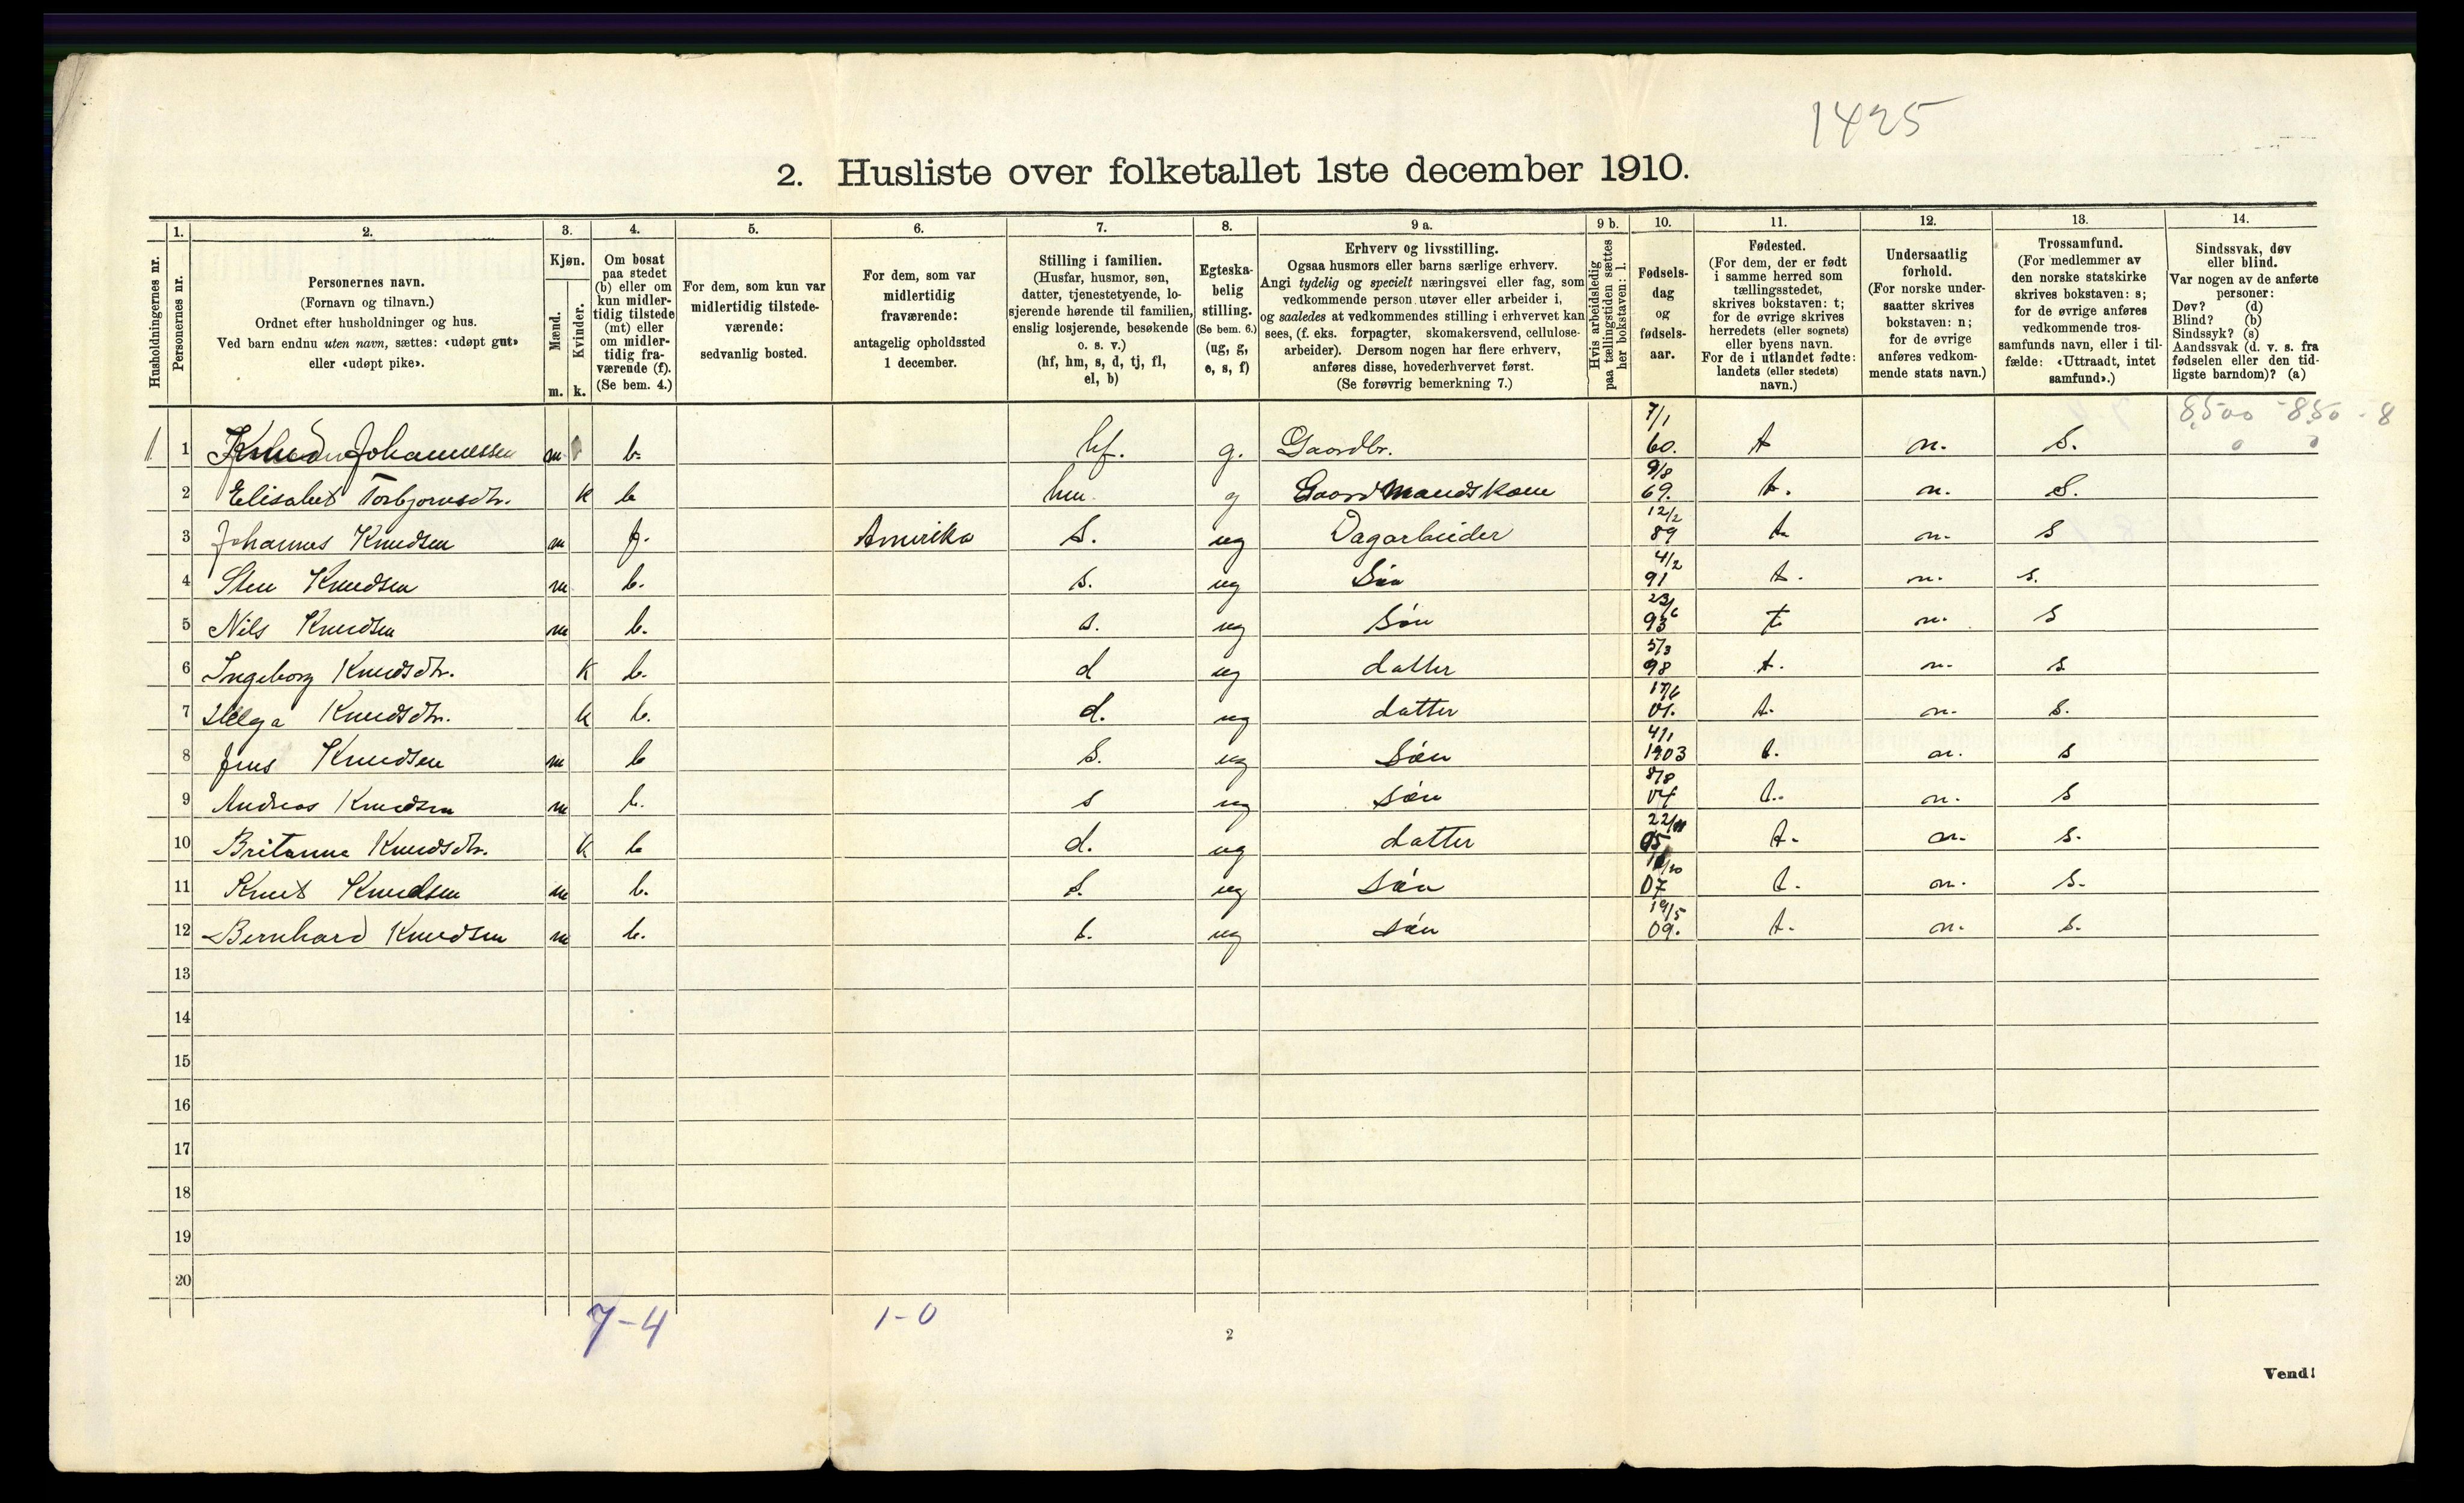 1425
2. Husliste over folketallet 1ste december 1910.
Husholdningernes nr.
1. Personernes nr.
2. Personernes navn.
(Fornavn og tilnavn.)
Ordnet efter husholdninger og hus.
Ved barn endnu uten navn, sættes: «udøpt gut»
eller «udøpt pike».
3. Kjøn.
Mænd. m.
Kvinder. k.
4. Om bosat
paa stedet
(b) eller om
kun midler-
tidig tilstede
(mt) eller
om midler-
tidig fra-
værende (f).
(Se bem. 4.)
5. For dem, som kun var
midlertidig tilstede-
værende:
sedvanlig bosted.
6. For dem, som var
midlertidig
fraværende:
antagelig opholdssted
1 december.
7. Stilling i familien.
(Husfar, husmor, søn,
datter, tjenestetyende, lo-
sjerende hørende til familien,
enslig losjerende, besøkende
o. s. v.)
(hf, hm, s, d, tj, fl,
el, b)
8. Egteska-
belig
stilling.
(Se bem. 6.)
(ug, g,
e, s, f)
9 a. Erhverv og livsstilling.
Ogsaa husmors eller barns særlige erhverv.
Angi tydelig og specielt næringsvei eller fag, som
vedkommende person utøver eller arbeider i,
og saaledes at vedkommendes stilling i erhvervet kan
sees, (f. eks. forpagter, skomakersvend, cellulose-
arbeider). Dersom nogen har flere erhverv,
anføres disse, hovederhvervet først.
(Se forøvrig bemerkning 7.)
9 b. Hvis arbeidsledig
paa tællingstiden sættes
her bokstaven: l.
10. Fødsels-
dag
og
fødsels-
aar.
11. Fødested.
(For dem, der er født
i samme herred som
tællingsstedet,
skrives bokstaven: t;
for de øvrige skrives
herredets (eller sognets)
eller byens navn.
For de i utlandet fødte:
landets (eller stedets)
navn.)
12. Undersaatlig
forhold.
(For norske under-
saatter skrives
bokstaven: n;
for de øvrige
anføres vedkom-
mende stats navn.)
13. Trossamfund.
(For medlemmer av
den norske statskirke
skrives bokstaven: s;
for de øvrige anføres
vedkommende tros-
samfunds navn, eller i til-
fælde: «Uttraadt, intet
samfund».)
14. Sindssvak, døv
eller blind.
Var nogen av de anførte
personer:
Døv? (d)
Blind? (b)
Sindssyk? (s)
Aandssvak (d. v. s. fra
fødselen eller den tid-
ligste barndom)? (a)
8500 - 850 - 8
1 1 Johannessen m b. hf. g. Gaardbr. 7/1 60. t n. S.
2 Elisabet Torbjørnsdtr. k b hm. g Gaardmandskone 9/8 69. t. n. S.
3 Johannes Knudsen m f. Amerika S. ug Dagarbeider 12/2 89 t. n. s
4 Sten Knudsen m b. s. ug Søn 4/2 91 t. n. s.
5 Nils Knudsen m b. s. ug Søn 23/6 93 t n. s
6 Ingeborg Knudsdtr. k b. d ug datter 5/3 98 t. n. s
7 Helga Knudsdtr. k b. d. ug datter 17/6 01. t. n. s.
8 Jens Knudsen m b s. ug Søn 4/1 1903 t. n. s
9 Andreas Knudsen m b. s ug søn 8/8 04 t. n. s
10 Britanna Knudsdtr. k b d. ug datter 22/11 05 t. n. s.
11 Knut Knudsen m b. s. ug søn 07 t. n. s.
12 Bernhard Knudsen m b. s. ug søn 19/5 09. t. n. s.
13
14
15
16
17
18
19
20
7-4 1-0
2
Vend!